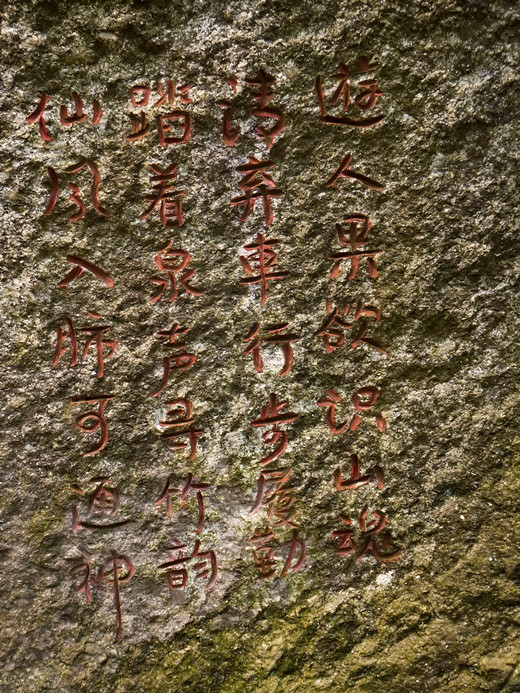 遊人果欲识山魂
请弃车行步履勤
踏着泉声寻竹韵
仙风入肺可通神